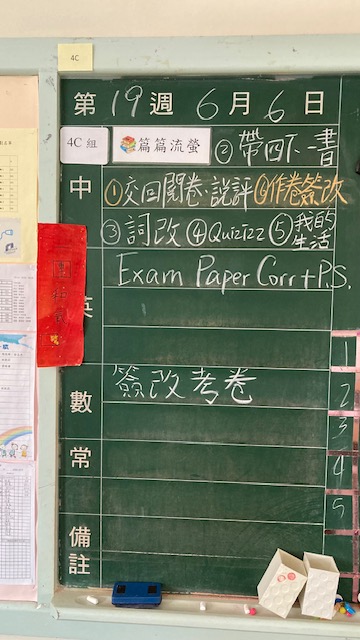 4C
第 19 週 6 月 6 日
4C 組 篇篇流螢 ②帶四下一書
中 ①交回閱卷·說評 ⑥作卷簽改
③詞改 ④Quizizz ⑤我的生活
英 Exam Paper Corr + P.S.
1
數 簽改考卷
2
3
常
4
5
備註